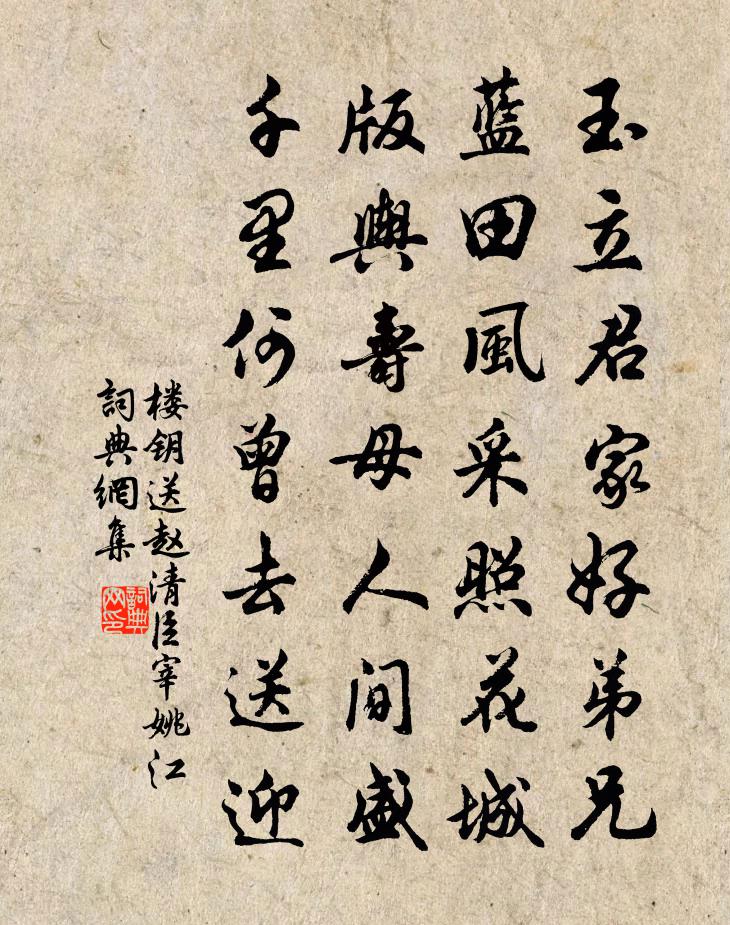 玉立君家好弟兄
藍田風采照花城
版輿壽母人間盛
千里何曾去送迎
楼钥送赵清臣宰姚江
詞典網集
詞典网印